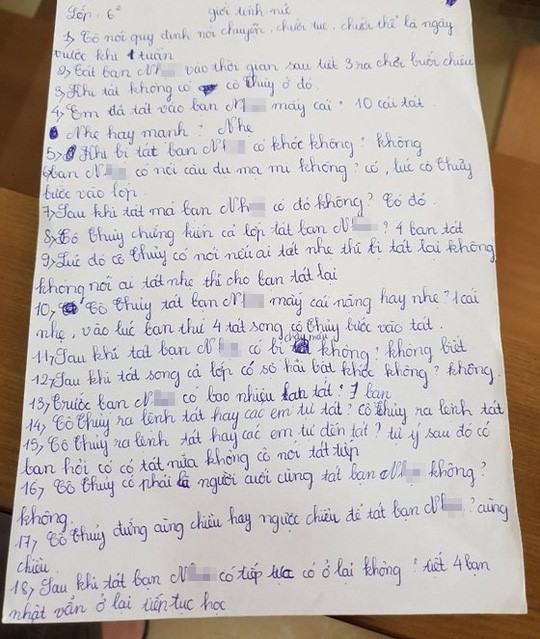 Lớp: 6² giới tính nữ
1, Cô nói quy định nói chuyện, chửi tục, chửi thề là ngày
trước khi 1 tuần
2, Tát bạn Nh vào thời gian sau tiết 3 ra chơi buổi chiều
3, Khi tát không có cô Thủy ở đó.
4, Em đã tát vào bạn N mấy cái? 10 cái tát
Nhẹ hay mạnh? Nhẹ
5, Khi bị tát bạn N có khóc không? không
6, bạn N có nói câu du ma mi không? có, lúc cô Thủy
bước vào lớp
7, Sau khi tát má bạn Nh có đỏ không? Có đỏ
8, Cô Thủy chứng kiến cả lớp tát bạn N? 4 bạn tát
9, Lúc đó cô Thủy có nói nếu ai tát nhẹ thì bị tát lại không
không nói ai tát nhẹ thì cho bạn tát lại
10, Cô Thủy tát bạn N mấy cái nặng hay nhẹ? 1 cái
nhẹ, vào lúc bạn thứ 4 tát song cô Thủy bước vào tát.
11, Sau khi tát bạn N có bị chảy máu không? không biết
12, Sau khi tát song cả lớp có sợ hãi bật khóc không? không.
13, Trước bạn N có bao nhiêu bạn tát? 7 bạn
14, Cô Thủy ra lệnh tát hay các em tự tát? Cô Thủy ra lệnh tát
15, Cô Thủy ra lệnh tát hay các em tự đến tát? tự ý sau đó có
bạn hỏi cô có tát nữa không cô nói tát tiếp
16, Cô Thủy có phải là người cuối cùng tát bạn N không?
không.
17, Cô Thủy đứng cùng chiều hay ngược chiều để tát bạn N? cùng
chiều
18, Sau khi tát bạn N có tiếp tục có ở lại không? tiết 4 bạn
nhật vẫn ở lại tiếp tục học